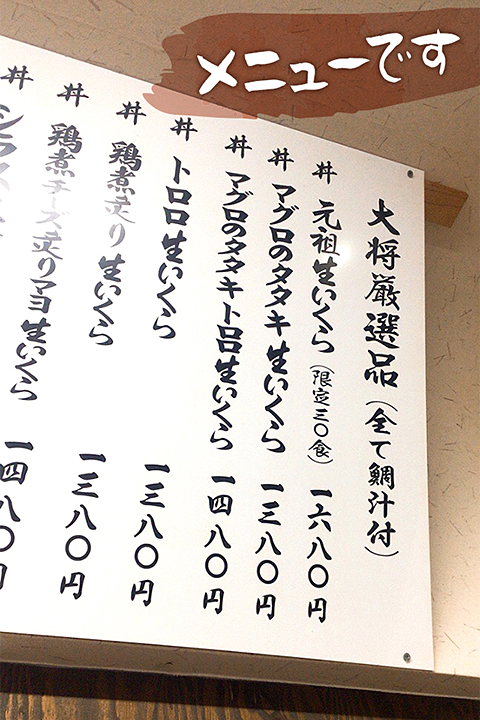 メニューです
大将厳選品(全て鯛汁付)
丼 元祖生いくら(限定三〇食) 一六八〇円
丼 マグロのタタキ生いくら 一三八〇円
丼 マグロのタタキトロロ生いくら 一四八〇円
丼 トロロ生いくら 一三八〇円
丼 鶏煮炙り生いくら 一三八〇円
丼 鶏煮チーズ炙りマヨ生いくら 一四八〇円
丼 シラス